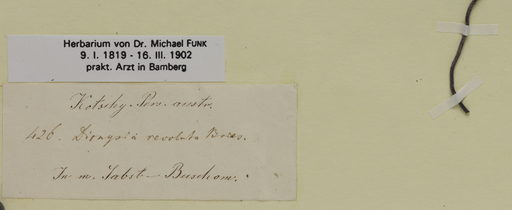 Herbarium von Dr. Michael FUNK
9. I. 1819 - 16. III. 1902
prakt. Arzt in Bamberg
Kotschy. Pers. austr.
426. Dionysia revoluta Boiss.
In m. Sabst-Buschom.